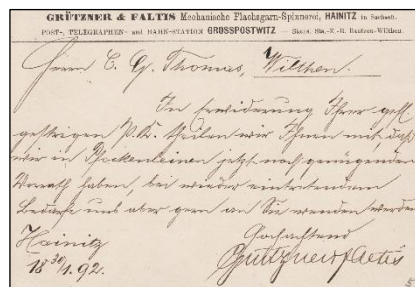 GRÜTZNER & FALTIS Mechanische Flachsgarn-Spinnerei, HAINITZ in Sachsen.
POST-, TELEGRAPHEN- und BAHN-STATION GROSSPOSTWITZ Sächs. Sta.-E.-B. Bautzen-Wilthen.
Herrn C. G. Thomas, Wilthen.
In Erwiderung Ihrer gefl.
gestrigen P.K. theilen wir Ihnen mit, daß
wir in jetzt noch genügenden
Vorrath haben, bei wieder eintretendem
Bedarfe uns aber gern an Sie wenden werden
Hainitz
18 30/1. 92.
Hochachtend
Grützner & Faltis